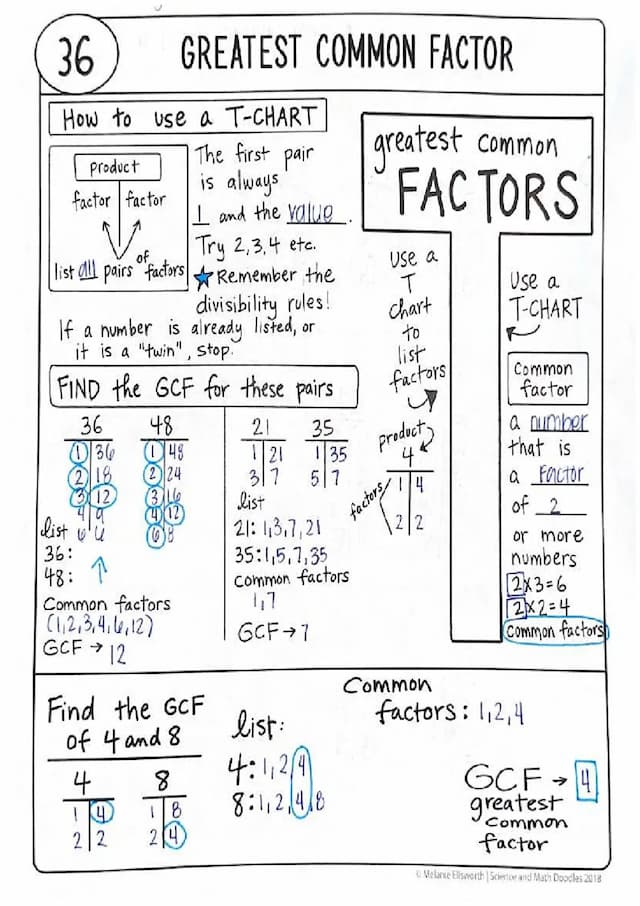 36
GREATEST COMMON FACTOR
How to use a T-CHART
product
factor factor
list all pairs of factors
The first pair
is always
1 and the value.
Try 2,3,4 etc.
★Remember the
divisibility rules!
If a number is already listed, or
it is a "twin", stop.
greatest common
FACTORS
use a
T
chart
to
list
factors
product
4
1 4
2 2
factors
USE a
T-CHART
Common
factor
a number
that is
a Factor
of 2
or more
numbers
2x3=6
2x2=4
Common factors
FIND the GCF for these pairs
36
1 36
2 18
3 12
4 9
6 6
48
1 48
2 24
3 16
4 12
6 8
list
36:
48:
Common factors
(1,2,3,4,6,12)
GCF → 12
21
1 21
3 7
35
1 35
5 7
list
21: 1,3,7,21
35: 1,5,7,35
Common factors
1,7
GCF → 7
Find the GCF
of 4 and 8
4
1 4
2 2
8
1 8
2 4
list:
4: 1,2,4
8: 1,2,4,8
Common
factors: 1,2,4
GCF → 4
greatest
common
factor
© Melanie Ellsworth | Science and Math Doodles 2018